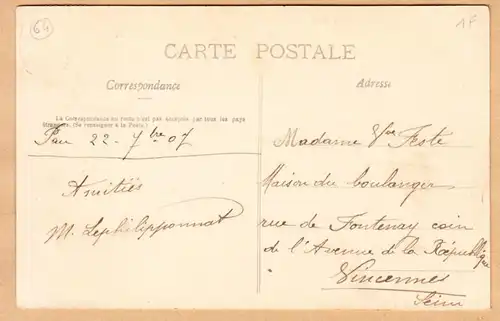 64
1F
CARTE POSTALE
Correspondance
Adresse
La Correspondance au recto n'est pas acceptée par tous les pays
étrangers. (Se renseigner à la Poste.)
Pau 22-7bre 07
Amitiés
M. Lephilipponnat
Madame Vve Teste
Maison du boulanger
rue de Fontenay coin
de l'Avenue de la République
Vincennes
Seine